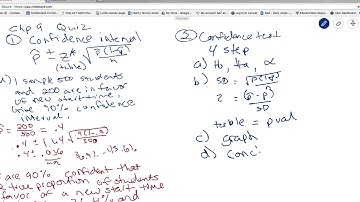 Chp 9 Quiz
① Confidence interval
p̂ ± z* √(p̂(1-p̂)/n)
(table)
I sample 500 students
and 200 are in favor
of new start time,
Give 90% confidence
interval.
200/500 = .4
.4 ± 1.64 √(.4(1-.4)/500)
.4 ± .036
are 90% confident that
true proportion of students
favor of a new start time
② Confidence test
4 step
a) Ho, Ha, α
b) SD = √(p(1-p)/n)
z = (p̂ - p)/SD
table = pval
c) graph
d) Conc